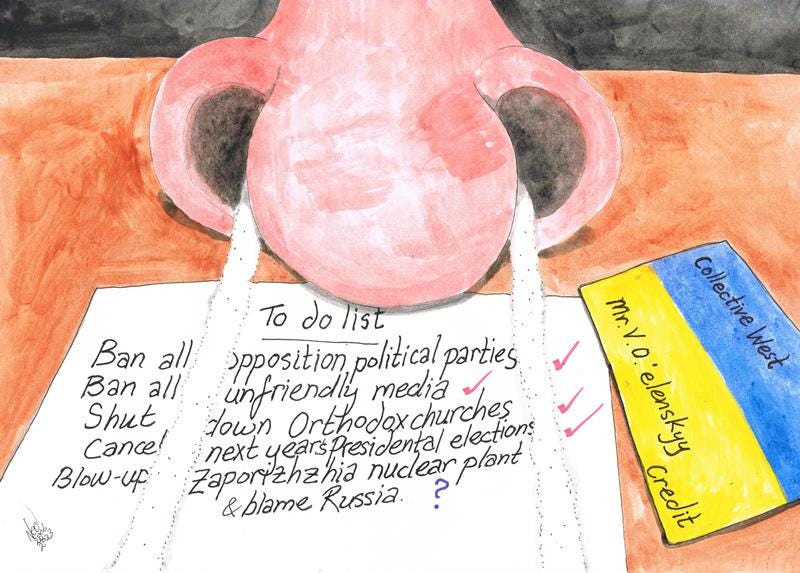 To do list
Ban all opposition political parties
Ban all unfriendly media
Shut down Orthodox churches
Cancel next years Presidental elections
Blow-up Zaporizhzhia nuclear plant
& blame Russia. ?
Collective West
Mr. V.O'elenskyy
Credit
2023